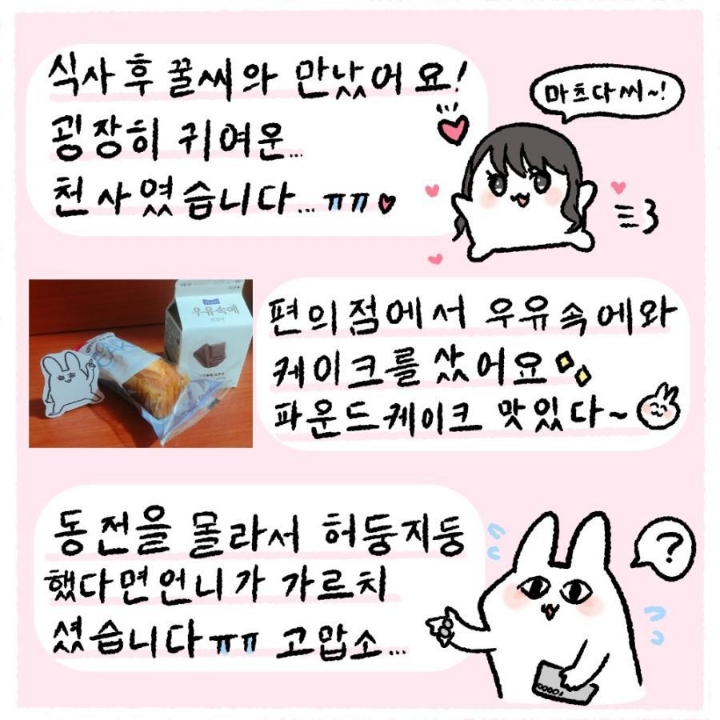 식사 후 꿀씨와 만났어요!
굉장히 귀여운...
천사였습니다...ㅠㅠ
마츠다씨~!
우유속에
편의점에서 우유속에와
케이크를 샀어요
파운드케이크 맛있다~
동전을 몰라서 허둥지둥
했다면 언니가 가르치
셨습니다ㅠㅠ 고맙소...
?